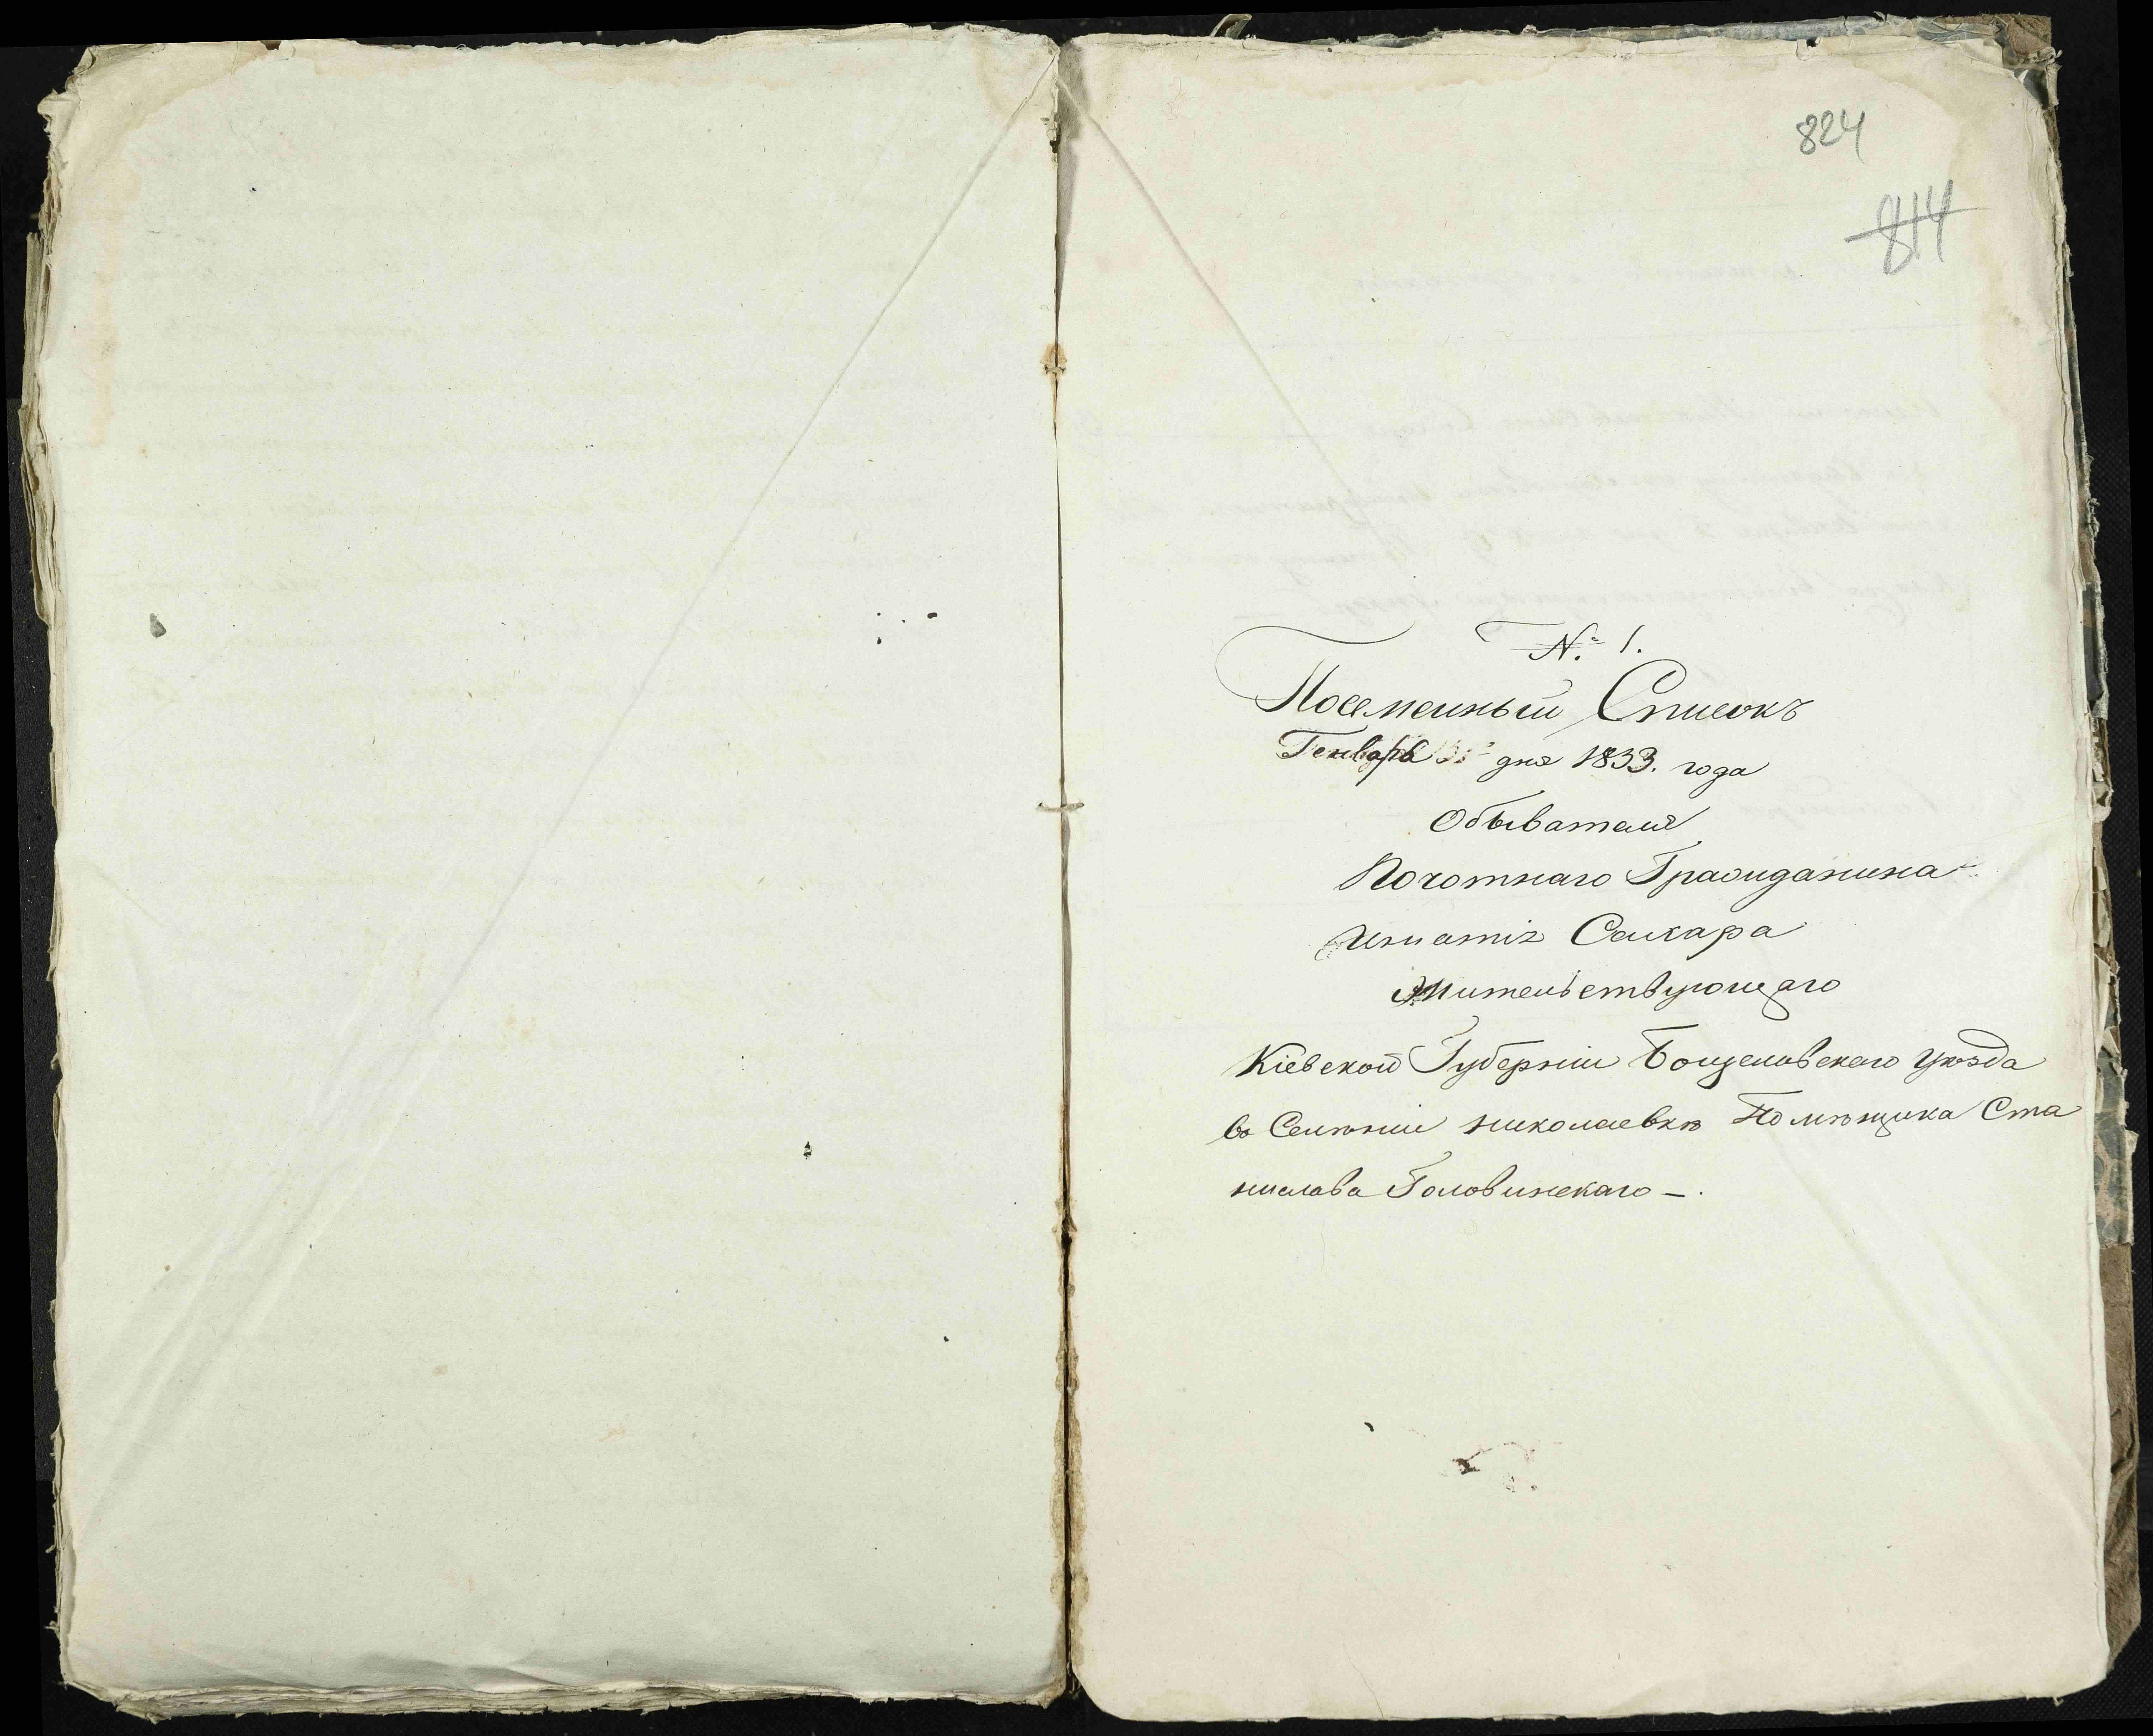 824
814
№ 1.
Посемейный Списокъ
Генваря дня 1833. года
Обывателя
Почотнаго Гражданина
Игнатія Сакара
Жительствующаго
Кіевской Губерніи уѣзда
во Селѣніи николаевкѣ Помѣщика Ста
нислава Головинскаго —.